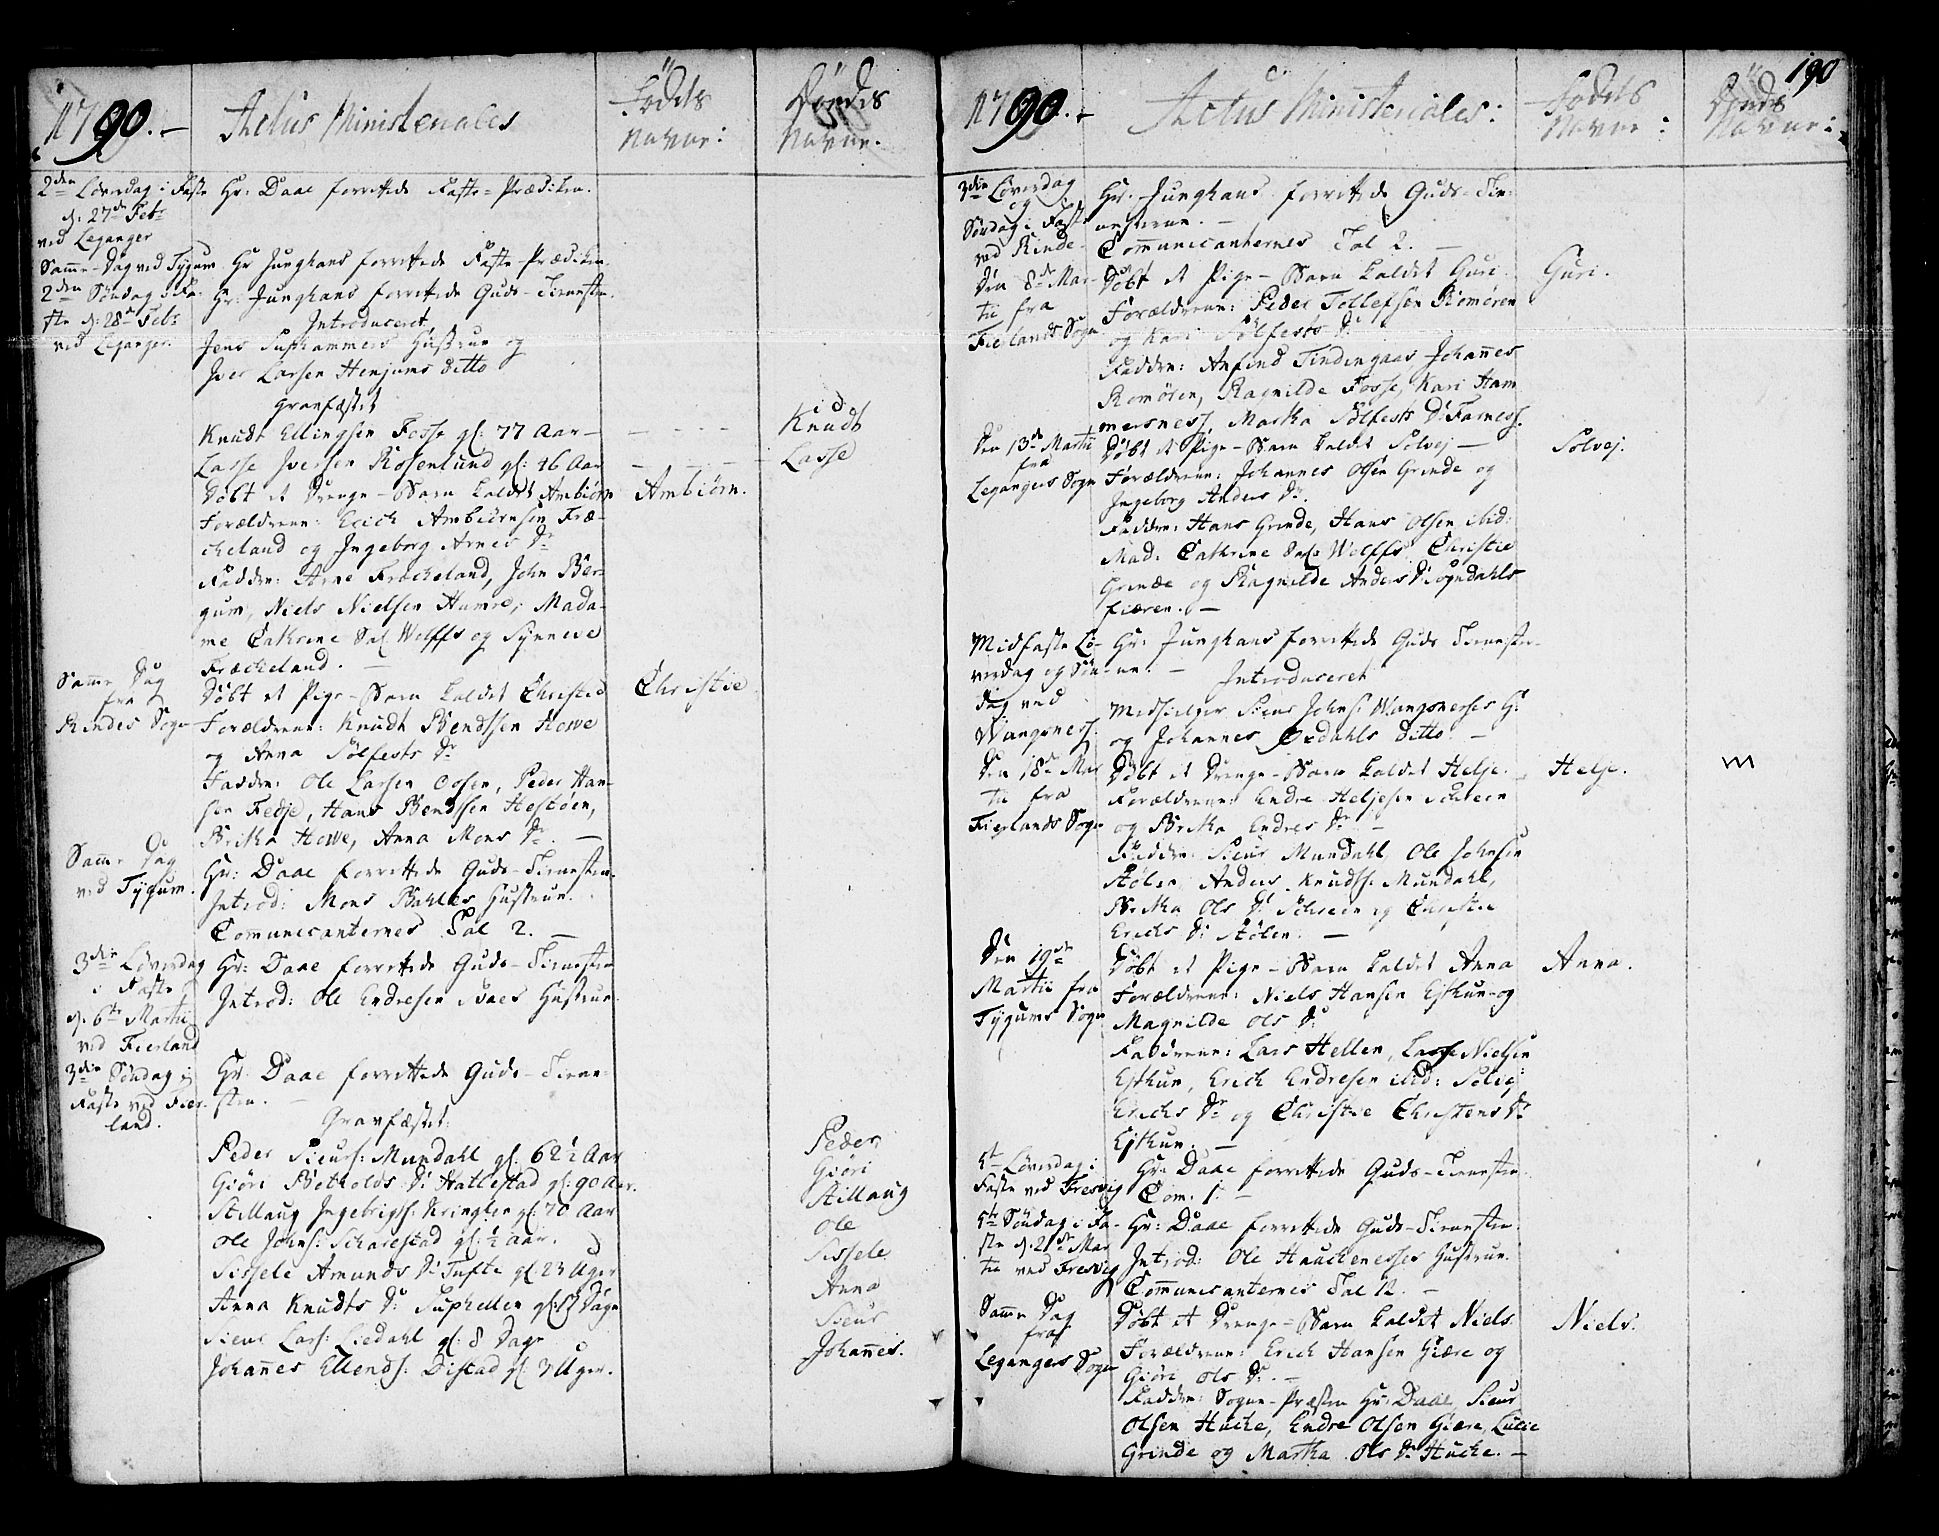 1790.
Actus Ministeriales
Fødds Navne:
Dønds Navne.
2den Løverdag i Faste
d: 27de Febr
ved Leganger
Hr: Daae forrettede Faste-Prædiken.
Samme-Dag ved Tygum
Hr Junghans forrettede Faste-Prædiken
2den Søndag i Fa-
ste d: 28de Febr
ved Leganger.
Hr: Junghans forrettede Guds-Tienesten.
Introduceret
Jens Suphammers Hustrue og
Iver Larsen Henjums ditto
Gravfæstet
Knudt Ellingsen Fosse gl: 77 Aar -
Knudt
Lasse Iversen Rosenlund gl: 16 Aar
Lasse
Døbt et Drenge-Barn kaldet Ambiørn
Ambiørn.
Forældrene: Erich Ambiørnsen Fræ-
cheland og Ingeborg Arnes Dr
Faddere: Arne Fræcheland, John Ber-
gum, Niels Nielsen Hamre, Mada-
me Cathrine Sal Wolffs og Synneve
Fræcheland.
Samme Dag
fra
Rindes Sogn
Døbt et Pige-Barn kaldet Christie
Christie
Forældrene: Knudt Bendtsen Howe
og Anna Sølfests Dr
Faddere: Ole Larsen Ossen, Peder Han-
sen Fedje, Hans Bendtsen Hestøen,
Britha Howe, Anna Mons Dr.
Samme Dag
ved Tygum.
Hr: Daae forrettede Guds-Tienesten.
Introd: Mons Bahles Hustrue.
Communicanternes Tal 2.
3die Løverdag
i Faste
d: 6te Martii
ved Fierland
Hr: Daae forrettede Guds-Tienesten
Introd: Ole Endresen Bøes Hustrue
3die Søndag i
Faste ved Fier-
land.
Hr: Daae forrettede Guds-Tiene-
sten.
Gravfæstet:
Peder Siurs: Mundahl gl: 62½ Aar
Peder
Giøri Botholds Dr Hatlestad gl: 90 Aar.
Giøri
Stillaug Ingebrigts: Kringlen gl: 70 Aar
Stillaug
Ole Johns: Scharestad gl: ½ Aar.
Ole
Sissele Amunds Dr Tufte gl: 23 Uger
Sissele
Anna Knudts Dr: Suphellen gl: Dage
Anna
Siur Lars: Liedahl gl: 8 Dage
Siur
Johannes Ellends: Distad gl: 3 Uger.
Johannes.
190
1790.
Actus Ministeriales:
Fødds Navne:
Dønds Navne:
3die Løverdag
og
Søndag i Faste
ved Rinde
Hr. Junghans forrettede Guds-Tie-
nesterne.
Communicanternes Tal 2.
Den 8de Mar-
tii fra
Fierlands Sogn
Døbt et Pige-Barn kaldet Guri
Guri.
Forældrene: Peder Tollefsen Romøren
og Kari Sølfests Dr
Faddere: Anfind Tindengaas, Johannes
Romøren, Ragnilde Fosse, Kari Ham
mersness, Martha Sølfests Dr Farness.
Den 13de Martii
fra
Legangers Sogn
Døbt et Pige-Barn kaldet Solvej
Solvej.
Forældrene: Johannes Olsen Grinde og
Ingeborg Anders Dr.
Faddere: Hans Grinde, Hans Olsen ibid:
Mad: Cathrine Sal: Wolffs Christie
Grinde og Ragnilde Anders Dr Sogndahls
fiæren.
Midfaste Lø-
verdag og Søn-
dag ved
Wangsness.
Hr: Junghans forrettede Guds Tieneste-
ne.
Introduceret
Medhielper Siur Johns: Wangsnesses H:
og Johannes Ordahls ditto.
Den 18de Mar
tii fra
Fierlands Sogn
Døbt et Drenge-Barn kaldet Helje.
Helje.
Forældrene: Endre Heljesen Schreen
og Britha Endres Dr
Faddere: Siur Mundahl, Ole Johnsen
Stølen, Anders Knudts: Mundahl,
Britha Ols Dr Schreen og Christie
Erichs Dr Stølen.
Den 19de
Martii fra
Tygums Sogn
Døbt et Pige-Barn kaldet Anna
Anna.
Forældrene: Niels Hansen Esthun og
Magnilde Ols Dr
Faddrene: Lars Hellen, Lasse Nielsen
Esthun, Erich Endresen ibid: Solvej
Erichs Dr og Christie Christens Dr
Esthun.
5te Løverdag i
Faste ved Fresvig
Hr: Daae forrettede Guds-Tienesten
Com: 1.
5te Søndag i Fa-
ste d: 21de Mar
tii ved Fresvig
Hr: Daae forrettede Guds-Tienesten.
Introd: Ole Hauchenesses Hustrue.
Communicanternes Tal 12.
Samme Dag
fra
Legangers Sogn
Døbt et Drenge-Barn kaldet Niels
Niels.
Forældrene: Erich Hansen Giære og
Giøri Ols Dr.
Faddere: Sogne-Præsten Hr: Daae, Siur
Olsen Huche, Endre Olsen Giære, Lucie
Grinde og Martha Ols Dr Huche.